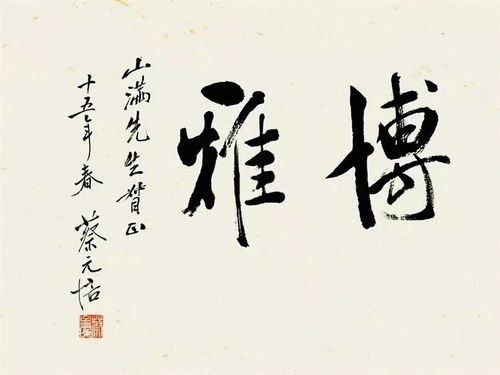 博雅
山满先生晳正
十五年春
蔡元培